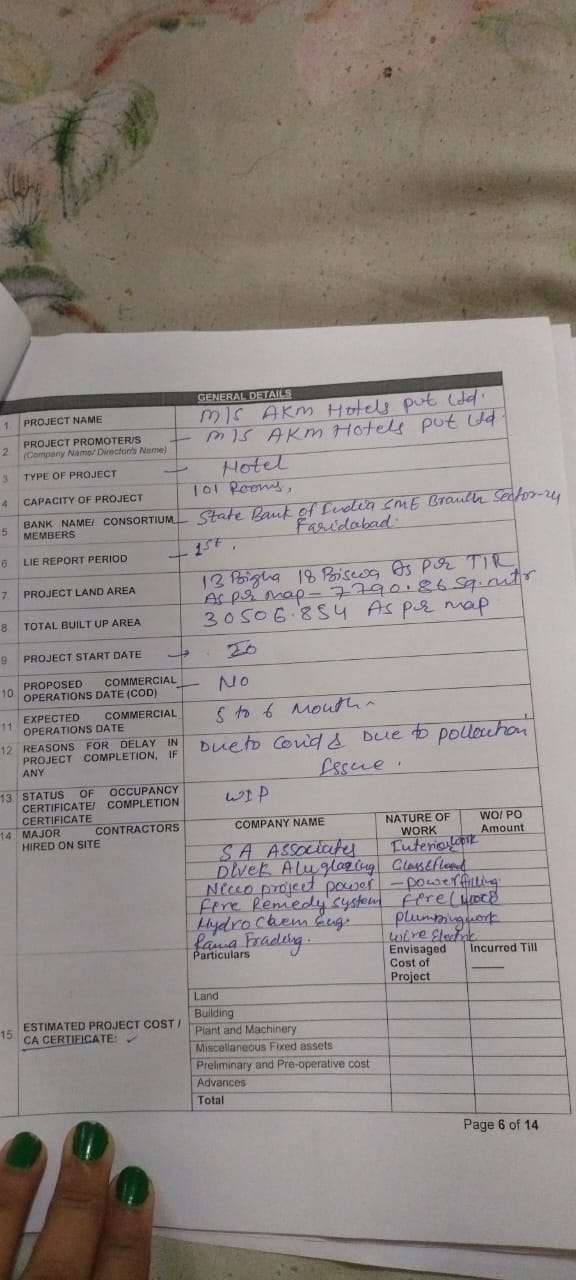 GENERAL DETAILS
1. PROJECT NAME M/S AKM Hotels pvt Ltd.
2. PROJECT PROMOTER/S – M/S AKM Hotels pvt Ltd.
(Company Name/ Director's Name)
3. TYPE OF PROJECT – Hotel
4. CAPACITY OF PROJECT 101 Rooms,
5. BANK NAME/ CONSORTIUM – State Bank of India SME Branch Sector-24
MEMBERS Faridabad.
6. LIE REPORT PERIOD – 1st.
7. PROJECT LAND AREA 13 Bigha 18 Biswa As per TIR
As per map – 7790.86 Sq.mtr
8. TOTAL BUILT UP AREA 30506.854 As per map
9. PROJECT START DATE →
10. PROPOSED COMMERCIAL – NO
OPERATIONS DATE (COD)
11. EXPECTED COMMERCIAL 5 to 6 Month
OPERATIONS DATE
12. REASONS FOR DELAY IN Due to Covid & Due to pollution
PROJECT COMPLETION, IF Issue.
ANY
13. STATUS OF OCCUPANCY WIP
CERTIFICATE/ COMPLETION
CERTIFICATE
14. MAJOR CONTRACTORS
HIRED ON SITE
COMPANY NAME NATURE OF WORK WO/ PO Amount
S A Associates Interior work
Aluglazing
project power – power
Fire Remedy System Fire
Hydro Chem Eng. plumbing work
Rama Trading. wire Electric
Particulars Envisaged Cost of Project Incurred Till
15. ESTIMATED PROJECT COST /
CA CERTIFICATE: ✓
Land
Building
Plant and Machinery
Miscellaneous Fixed assets
Preliminary and Pre-operative cost
Advances
Total
Page 6 of 14